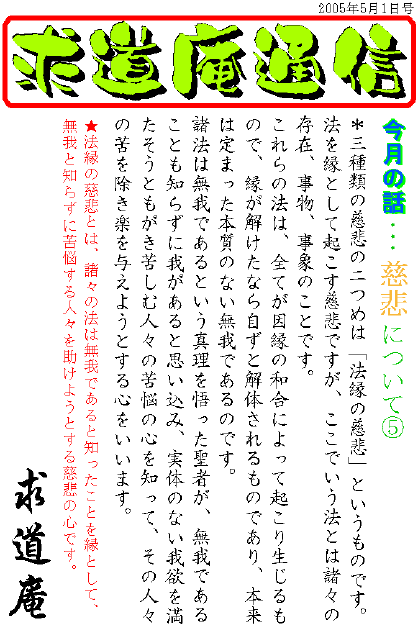 2005年5月1日号
求道庵通信
今月の話…慈悲について⑤
＊三種類の慈悲の二つめは「法縁の慈悲」というものです。
法を縁として起こす慈悲ですが、ここでいう法とは諸々の
存在、事物、事象のことです。
これらの法は、全てが因縁の和合によって起こり生じるも
ので、縁が解けたなら自ずと解体されるものであり、本来
は定まった本質のない無我であるのです。
諸法は無我であるという真理を悟った聖者が、無我である
ことも知らずに我があると思い込み、実体のない我欲を満
たそうともがき苦しむ人々の苦悩の心を知って、その人々
の苦を除き楽を与えようとする心をいいます。
★法縁の慈悲とは、諸々の法は無我であると知ったことを縁として、
無我と知らずに苦悩する人々を助けようとする慈悲の心です。
求道庵